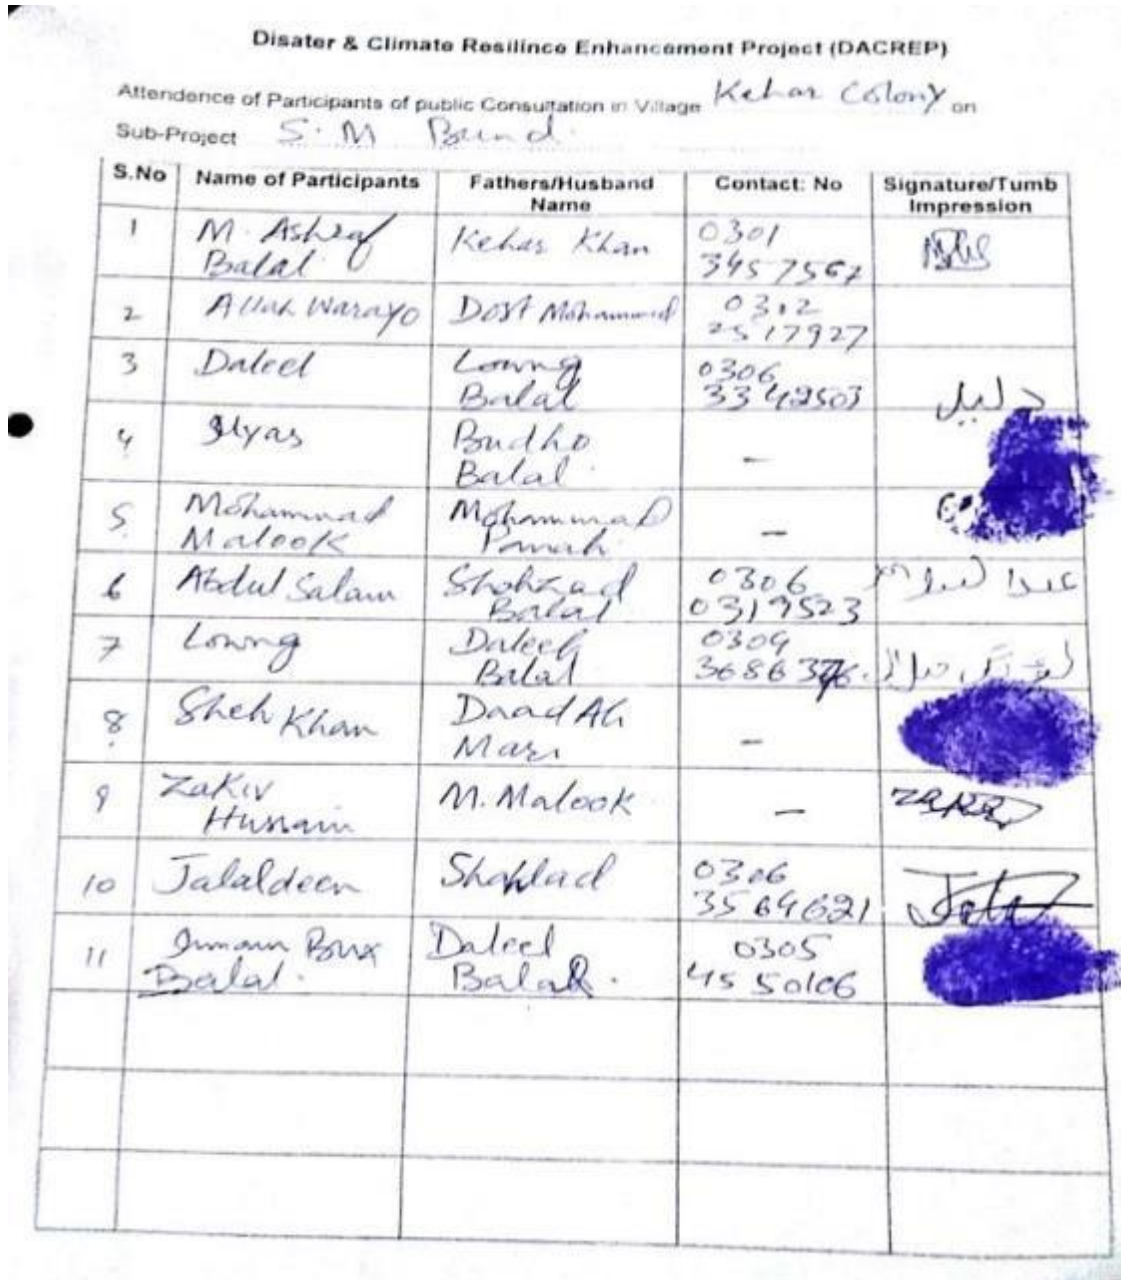 Disater & Climate Resilince Enhancement Project (DACREP)
Attendence of Participants of public Consultation in Village Kehar Colony on
Sub-Project S. M Bund.
S.No Name of Participants Fathers/Husband Name Contact: No Signature/Tumb Impression
1 M. Ashraf Balal Kehar Khan 0301 3457567
2 Allah Warayo Dost Mohammad 0312 2517927
3 Daleel Lowng Balal 0306 3342503 دليل
4 Ilyas Budho Balal -
5 Mohammad Malook Mohammad Panah -
6 Abdul Salam Shahzad Balal 0306 0319523
7 Lowng Daleel Balal 0309
8 Sheh Khan Daad Ali Mari -
9 Zakir Hussain M. Malook -
10 Jalaldeen 0306 3564621
11 Imam Bux Balal. Daleel Balal. 0305 4550106